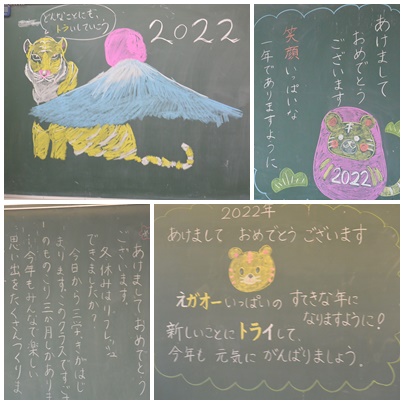 どんなことにも、
トライしていこう
2022
あけまして
おめでとう
ございます
笑顔いっぱいな
一年でありますように
2022
あけましておめでとう
ございます。
冬休みはリフレッシュ
できましたか？
今日から三学きがはじ
まります。このクラスですごす
のものこり三か月しかありま
今年もみんなで楽しい
思い出をたくさんつくりま
2022年
あけまして おめでとう ございます
えガオーいっぱいの すてきな年に
なりますように！
新しいことにトライして、
今年も 元気に がんばりましょう。